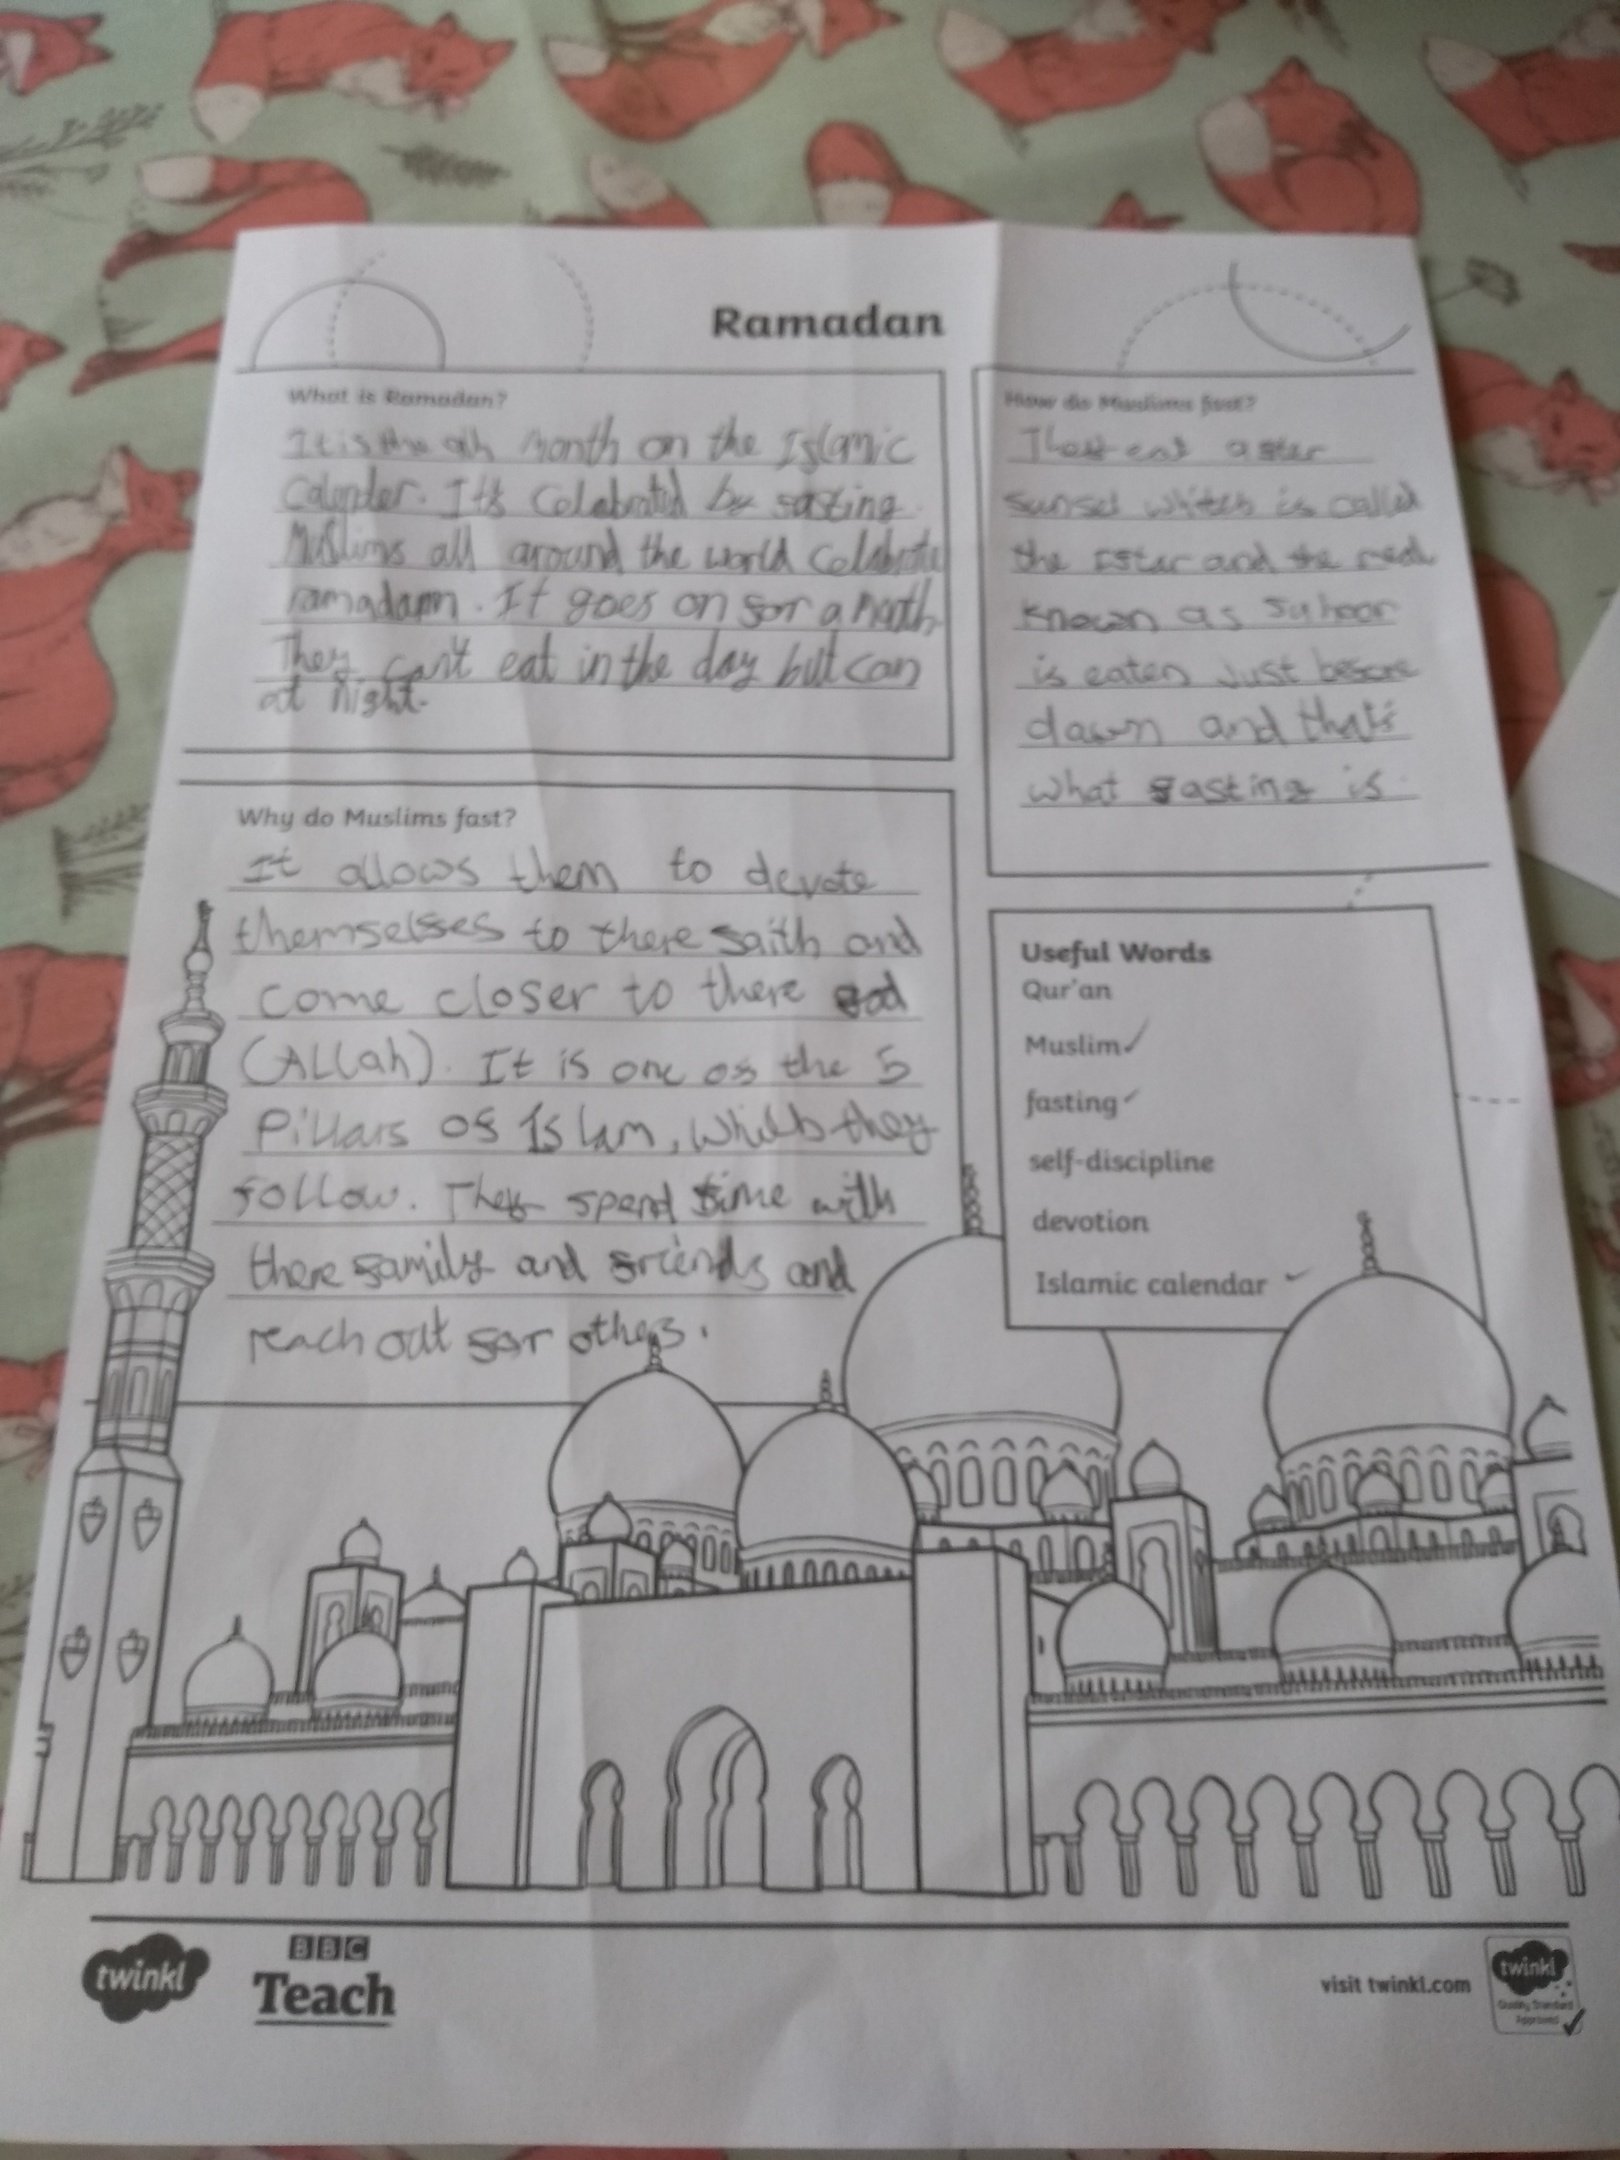 Ramadan
What is Ramadan?
It is the 9th month on the Islamic
Calender. It's Celabrated by fasting.
Muslims all around the world Celabrate
ramadann. It goes on for a Month
They can't eat in the day but can
at night.
How do Muslims fast?
eat after
sunset whitch is called
the Iftar and the meal
known as Suhoor
is eaten Just before
dawn and that's
what fasting is.
Why do Muslims fast?
It allows them to devote
themselfes to there faith and
come closer to there god
(ALLah). It is one of the 5
Pillars of Islam, they
follow. They spend time with
there family and friends and
reach out for others.
Useful Words
Qur'an
Muslim✓
fasting✓
self-discipline
devotion
Islamic calendar ✓
twinkl
BBC
Teach
visit twinkl.com
twinkl
Quality Standard
Approved